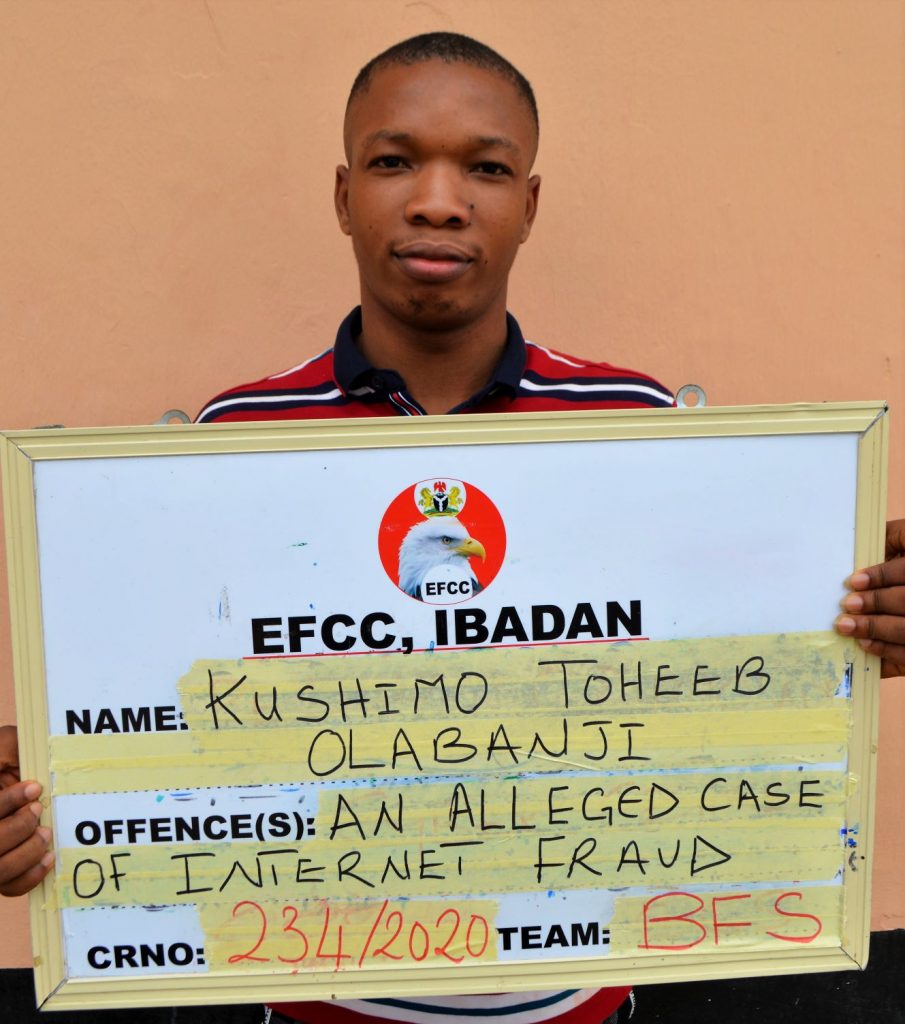 EFCC
EFCC, IBADAN
NAME: KUSHIMO TOHEEB
OLABANJI
OFFENCE(S): AN ALLEGED CASE
OF INTERNET FRAUD
CRNO: 234/2020 TEAM: BFS